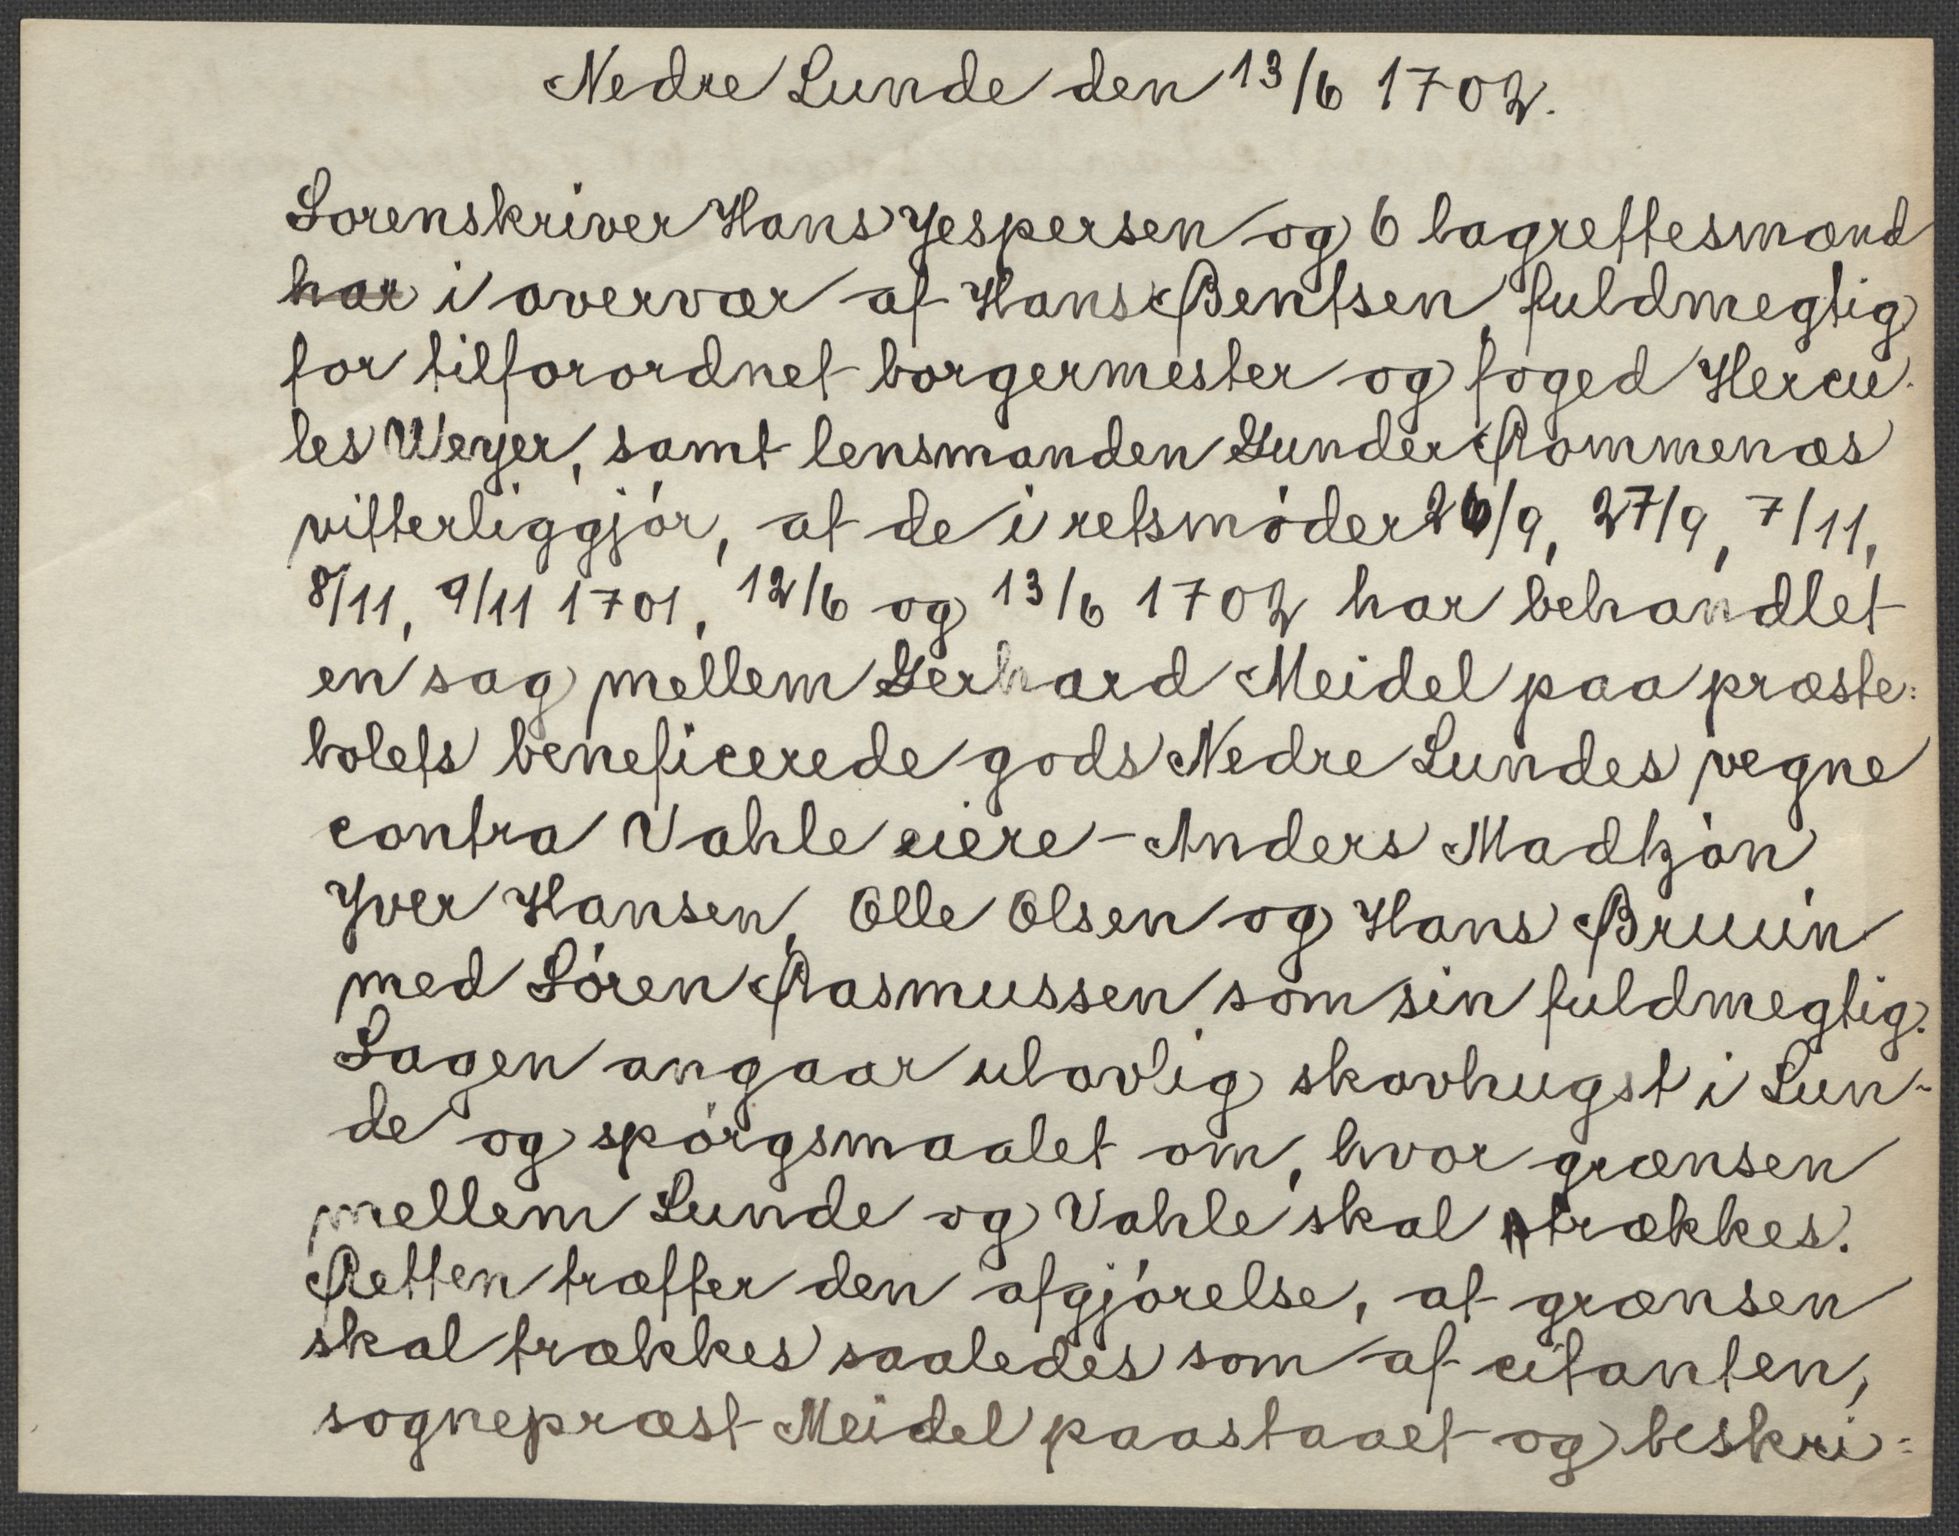 Nedre Lunde den 13/6 1702.
Sorenskriver Hans Jespersen og 6 lagrettesmænd
har i overvær af Hans Bentsen, fuldmegtig
for tilforordnet borgermester og foged Hercu-
les Weyer, samt lensmanden Gunder Rommenæs
vitterliggjør, at de i retsmøder 26/9, 27/9, 7/11,
8/11, 9/11 1701, 12/6 og 13/6 1702 har behandlet
en sag mellem Gerhard Meidel paa præste-
bolets beneficerede gods Nedre Lundes vegne
contra Vahle eiere - Anders Madtzøn
Yver Hansen, Olle Olsen og Hans Bruun
med Søren Rasmussen som sin fuldmegtig.
Sagen angaar ulovlig skovhugst i Lun-
de og spørgsmaalet om, hvor grænsen
mellem Lunde og Vahle skal trækkes.
Retten træffer den afgjørelse, at grænsen
skal trækkes saaledes som af citanten,
sognepræst Meidel paastaaet og beskri-